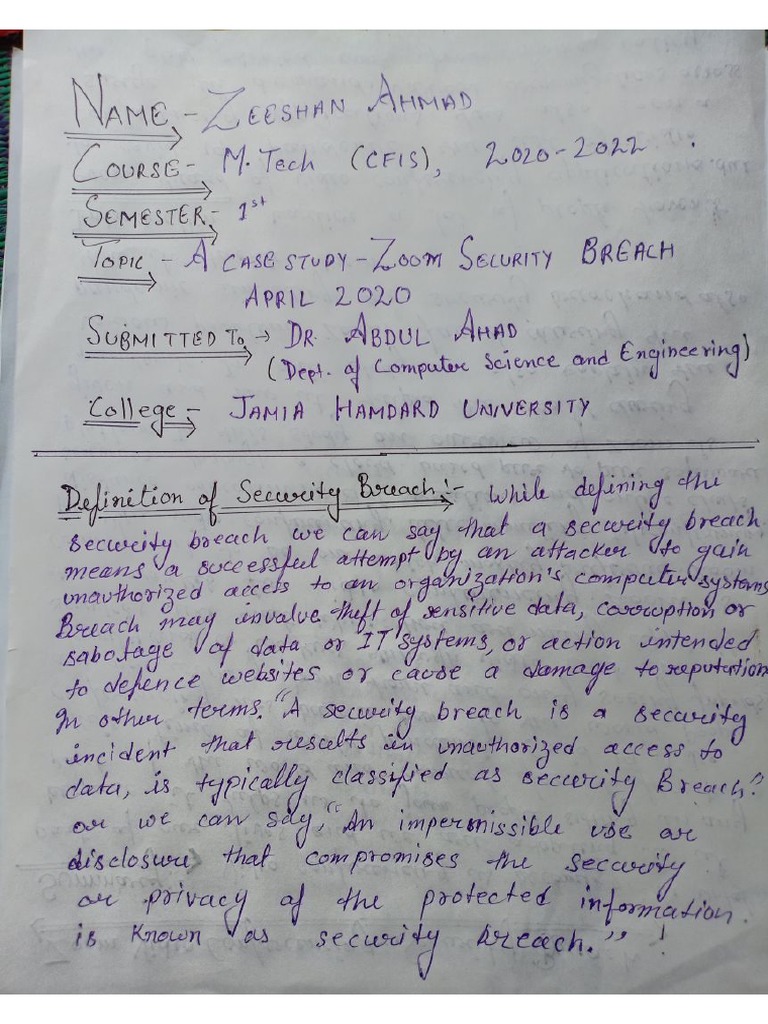 NAME - ZEESHAN AHMAD
COURSE - M.Tech (CFIS), 2020-2022.
SEMESTER - 1st
TOPIC - A CASE STUDY - ZOOM SECURITY BREACH
APRIL 2020
SUBMITTED To → DR. ABDUL AHAD
(Dept. of Computer Science and Engineering)
College - JAMIA HAMDARD UNIVERSITY
Definition of Security Breach:- While defining the
security breach we can say that a security breach
means a successful attempt by an attacker to gain
unauthorized access to an organization's computer systems
Breach may involve theft of sensitive data, corruption or
sabotage of data or IT systems, or action intended
to defence websites or cause a damage to reputation
In other terms. "A security breach is a security
incident that results in unauthorized access to
data, is typically classified as security Breach."
or we can say, "An impermissible use or
disclosure that compromises the security
or privacy of the protected information.
is known as security breach." !